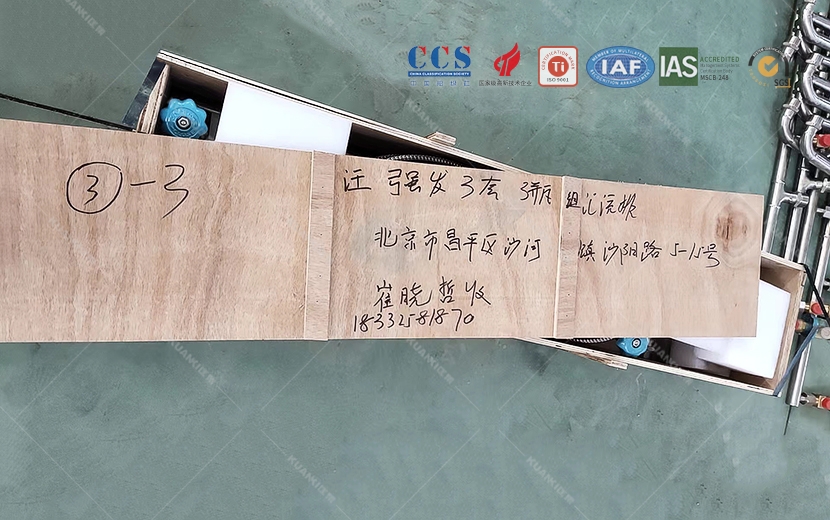 CCS
CHINA CLASSIFICATION SOCIETY
中国船级社
国家级高新技术企业
CERTIFICATION MARK
Ti
ISO 9001
MEMBER OF MULTILATERAL
IAF
RECOGNITION ARRANGEMENT
IAS
ACCREDITED
Management Systems
Certification Body
MSCB-248
SGS
③-3
江 强发 3套 3瓶 组汇流排
北京市昌平区沙河 镇沙阳路5-15号
崔晓哲收
18332581870
KUANKI